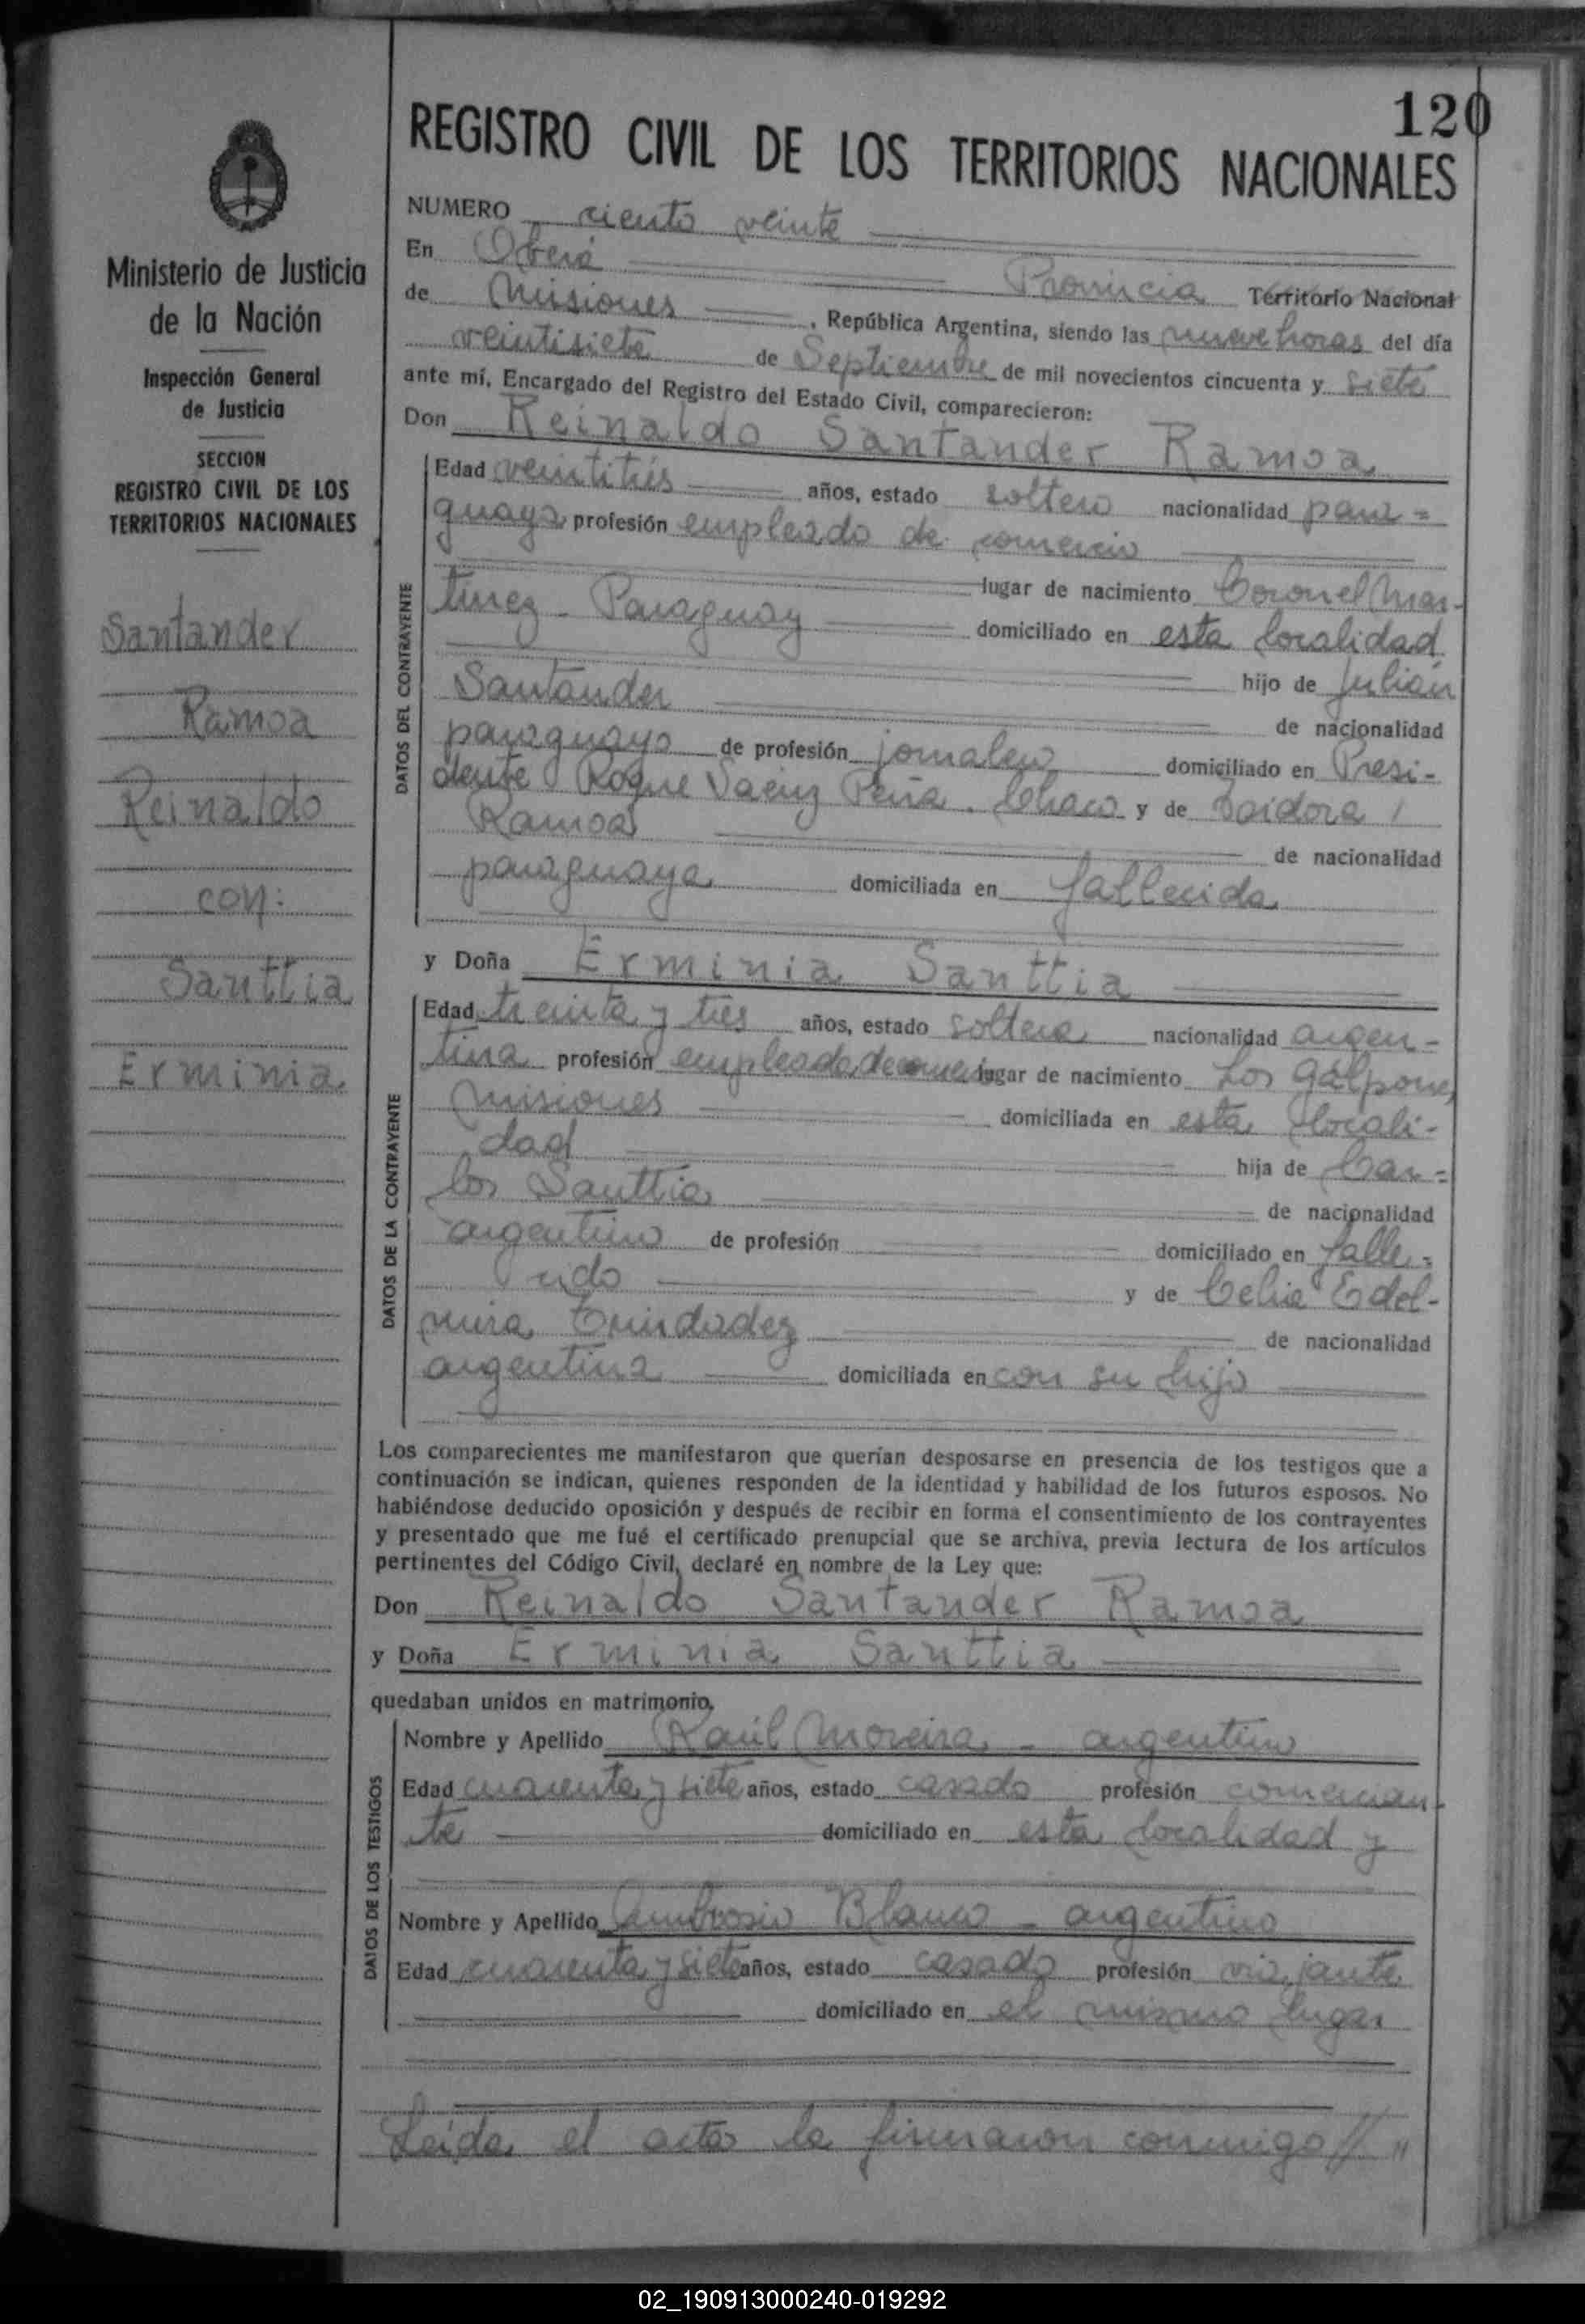 120
REGISTRO CIVIL DE LOS TERRITORIOS NACIONALES
Ministerio de Justicia
de la Nación
Inspección General
de Justicia
SECCION
REGISTRO CIVIL DE LOS
TERRITORIOS NACIONALES
Santander
Ramoa
Reinaldo
con:
Santtia
Erminia
NUMERO ciento veinte
En Oberá Provincia Territorio Nacional
de Misiones, República Argentina, siendo las nueve horas del día
veintisiete de Septiembre de mil novecientos cincuenta y siete
ante mí, Encargado del Registro del Estado Civil, comparecieron:
Don Reinaldo Santander Ramoa
DATOS DEL CONTRAYENTE
Edad veintitrés años, estado soltero nacionalidad para=
guaya profesión empleado de comercio
lugar de nacimiento Coronel Mar-
tinez - Paraguay domiciliado en esta localidad
hijo de Julián
Santander
de nacionalidad
paraguaya de profesión jornalero domiciliado en Presi-
dente Roque Saenz Peña. Chaco y de Isidora
Ramoa
de nacionalidad
paraguaya domiciliada en fallecida
y Doña Erminia Santtia
DATOS DE LA CONTRAYENTE
Edad treinta y tres años, estado soltera nacionalidad argen-
tina profesión empleada de comercio lugar de nacimiento Los Galpones,
Misiones domiciliada en esta locali-
dad hija de Car=
los Santtia
de nacionalidad
argentino de profesión domiciliado en falle=
cido y de Celia Edel-
mira Trindadez
de nacionalidad
argentina domiciliada en con su hijo
Los comparecientes me manifestaron que querían desposarse en presencia de los testigos que a
continuación se indican, quienes responden de la identidad y habilidad de los futuros esposos. No
habiéndose deducido oposición y después de recibir en forma el consentimiento de los contrayentes
y presentado que me fué el certificado prenupcial que se archiva, previa lectura de los artículos
pertinentes del Código Civil, declaré en nombre de la Ley que:
Don Reinaldo Santander Ramoa
y Doña Erminia Santtia
quedaban unidos en matrimonio.
DATOS DE LOS TESTIGOS
Nombre y Apellido Raúl Moreira - argentino
Edad cuarenta y siete años, estado casado profesión comercian-
te domiciliado en esta localidad y
Nombre y Apellido Ambrosio Blanco - argentino
Edad cuarenta y siete años, estado casado profesión viajante
domiciliado en el mismo lugar
Leída el acta la firmaron conmigo // "
02_190913000240-019292